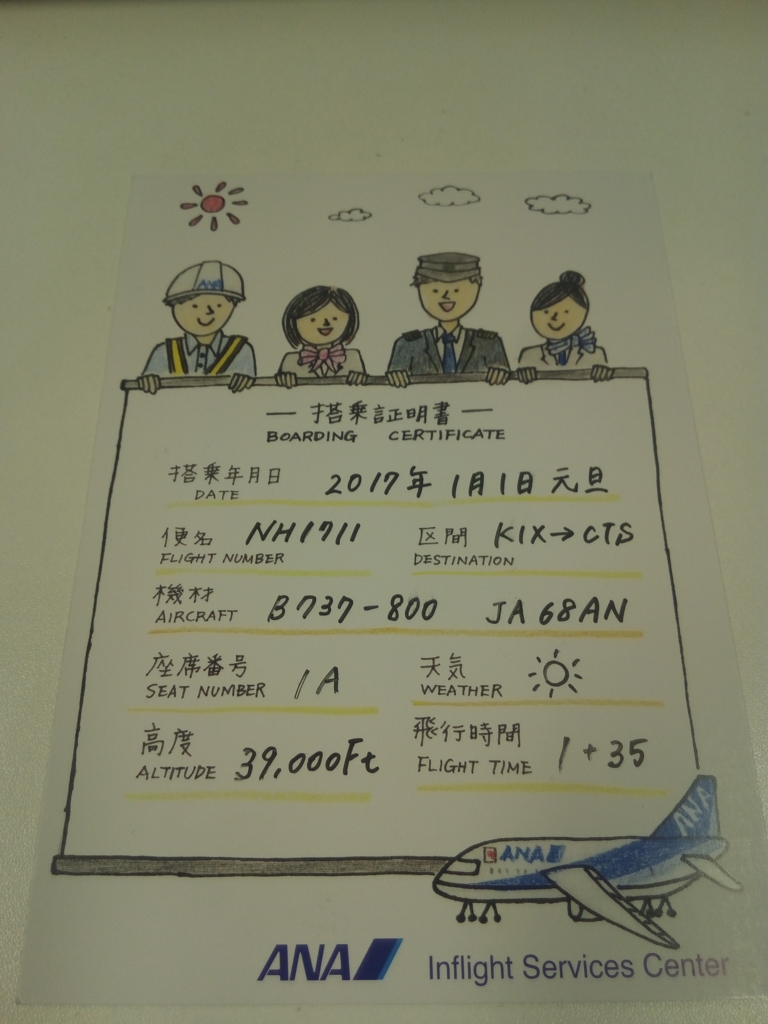 ANA
— 搭乗証明書 —
BOARDING CERTIFICATE
搭乗年月日 2017年 1月1日 元旦
DATE
便名 NH1711 区間 KIX→CTS
FLIGHT NUMBER DESTINATION
機材 B737-800 JA68AN
AIRCRAFT
座席番号 1A 天気
SEAT NUMBER WEATHER
高度 39,000Ft 飛行時間 1+35
ALTITUDE FLIGHT TIME
ANA
ANA
ANA Inflight Services Center